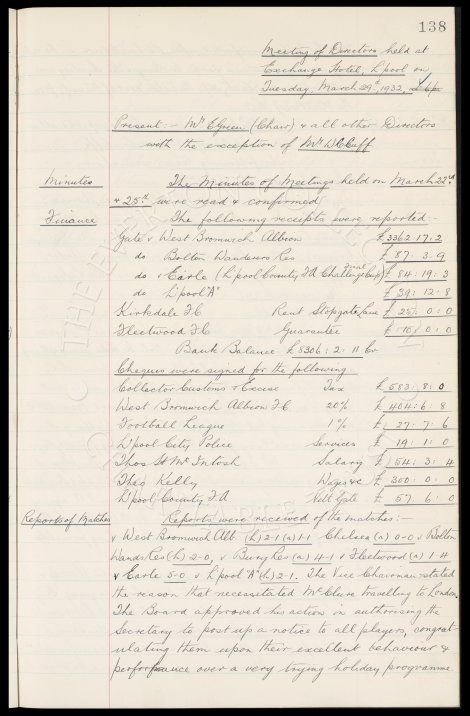 138
Meeting of Directors held at
Exchange Hotel, L'pool on
Tuesday, March 29th, 1932,
Present:- Mr E Green (Chair) & all other Directors
with the exception of Mr W C Cuff
Minutes The Minutes of Meetings held on March 22nd
& 25th were read & confirmed
Finance The following receipts were reported:-
Gate v West Bromwich Albion £3362:17:2
do Bolton Wanderers Res £87:3:9
do v Earle (L'pool County FA Challenge Cup) Final £84:19:3
do L'pool "A" £39:12:8
Kirkdale FC Rent Stopgate Lane £25:0:0
Fleetwood FC Guarantee £ 0:0
Bank Balance £8306:2:11 Cr
Cheques were signed for the following
Collector Customs & Excise Tax £583:8:0
West Bromwich Albion FC 20% £404:6:8
Football League 1% £27:7:6
L'pool City Police Services £19:11:0
Thos H Mc Intosh Salary £54:3:4
Theo Kelly Wages &c £300:0:0
L'pool County FA Nett Gate £57:6:0
Reports of Matches Reports were received of the matches:-
v West Bromwich Alb (h) 2-1 (a) 1-1 Chelsea (a) 0-0 v Bolton
Wands Res (h) 2-0, v Bury Res (a) 4-1 v Fleetwood (a) 1-4
v Earle 5-0 v L'pool "A" (h) 2-1. The Vice Chairman stated
the reason that necessitated McClure travelling to London
The Board approved his action in authorising the
Secretary to post up a notice to all players, congrat-
ulating them upon their excellent behaviour &
performance over a very trying holiday programme.